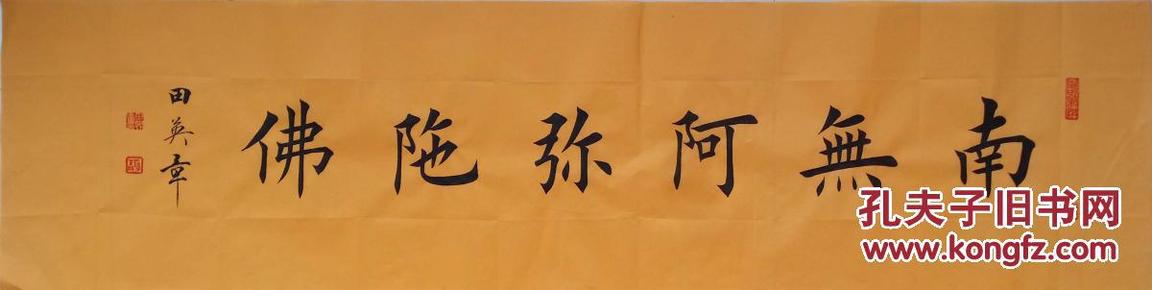 南無阿弥陁佛
田英章
孔夫子旧书网
www.kongfz.com